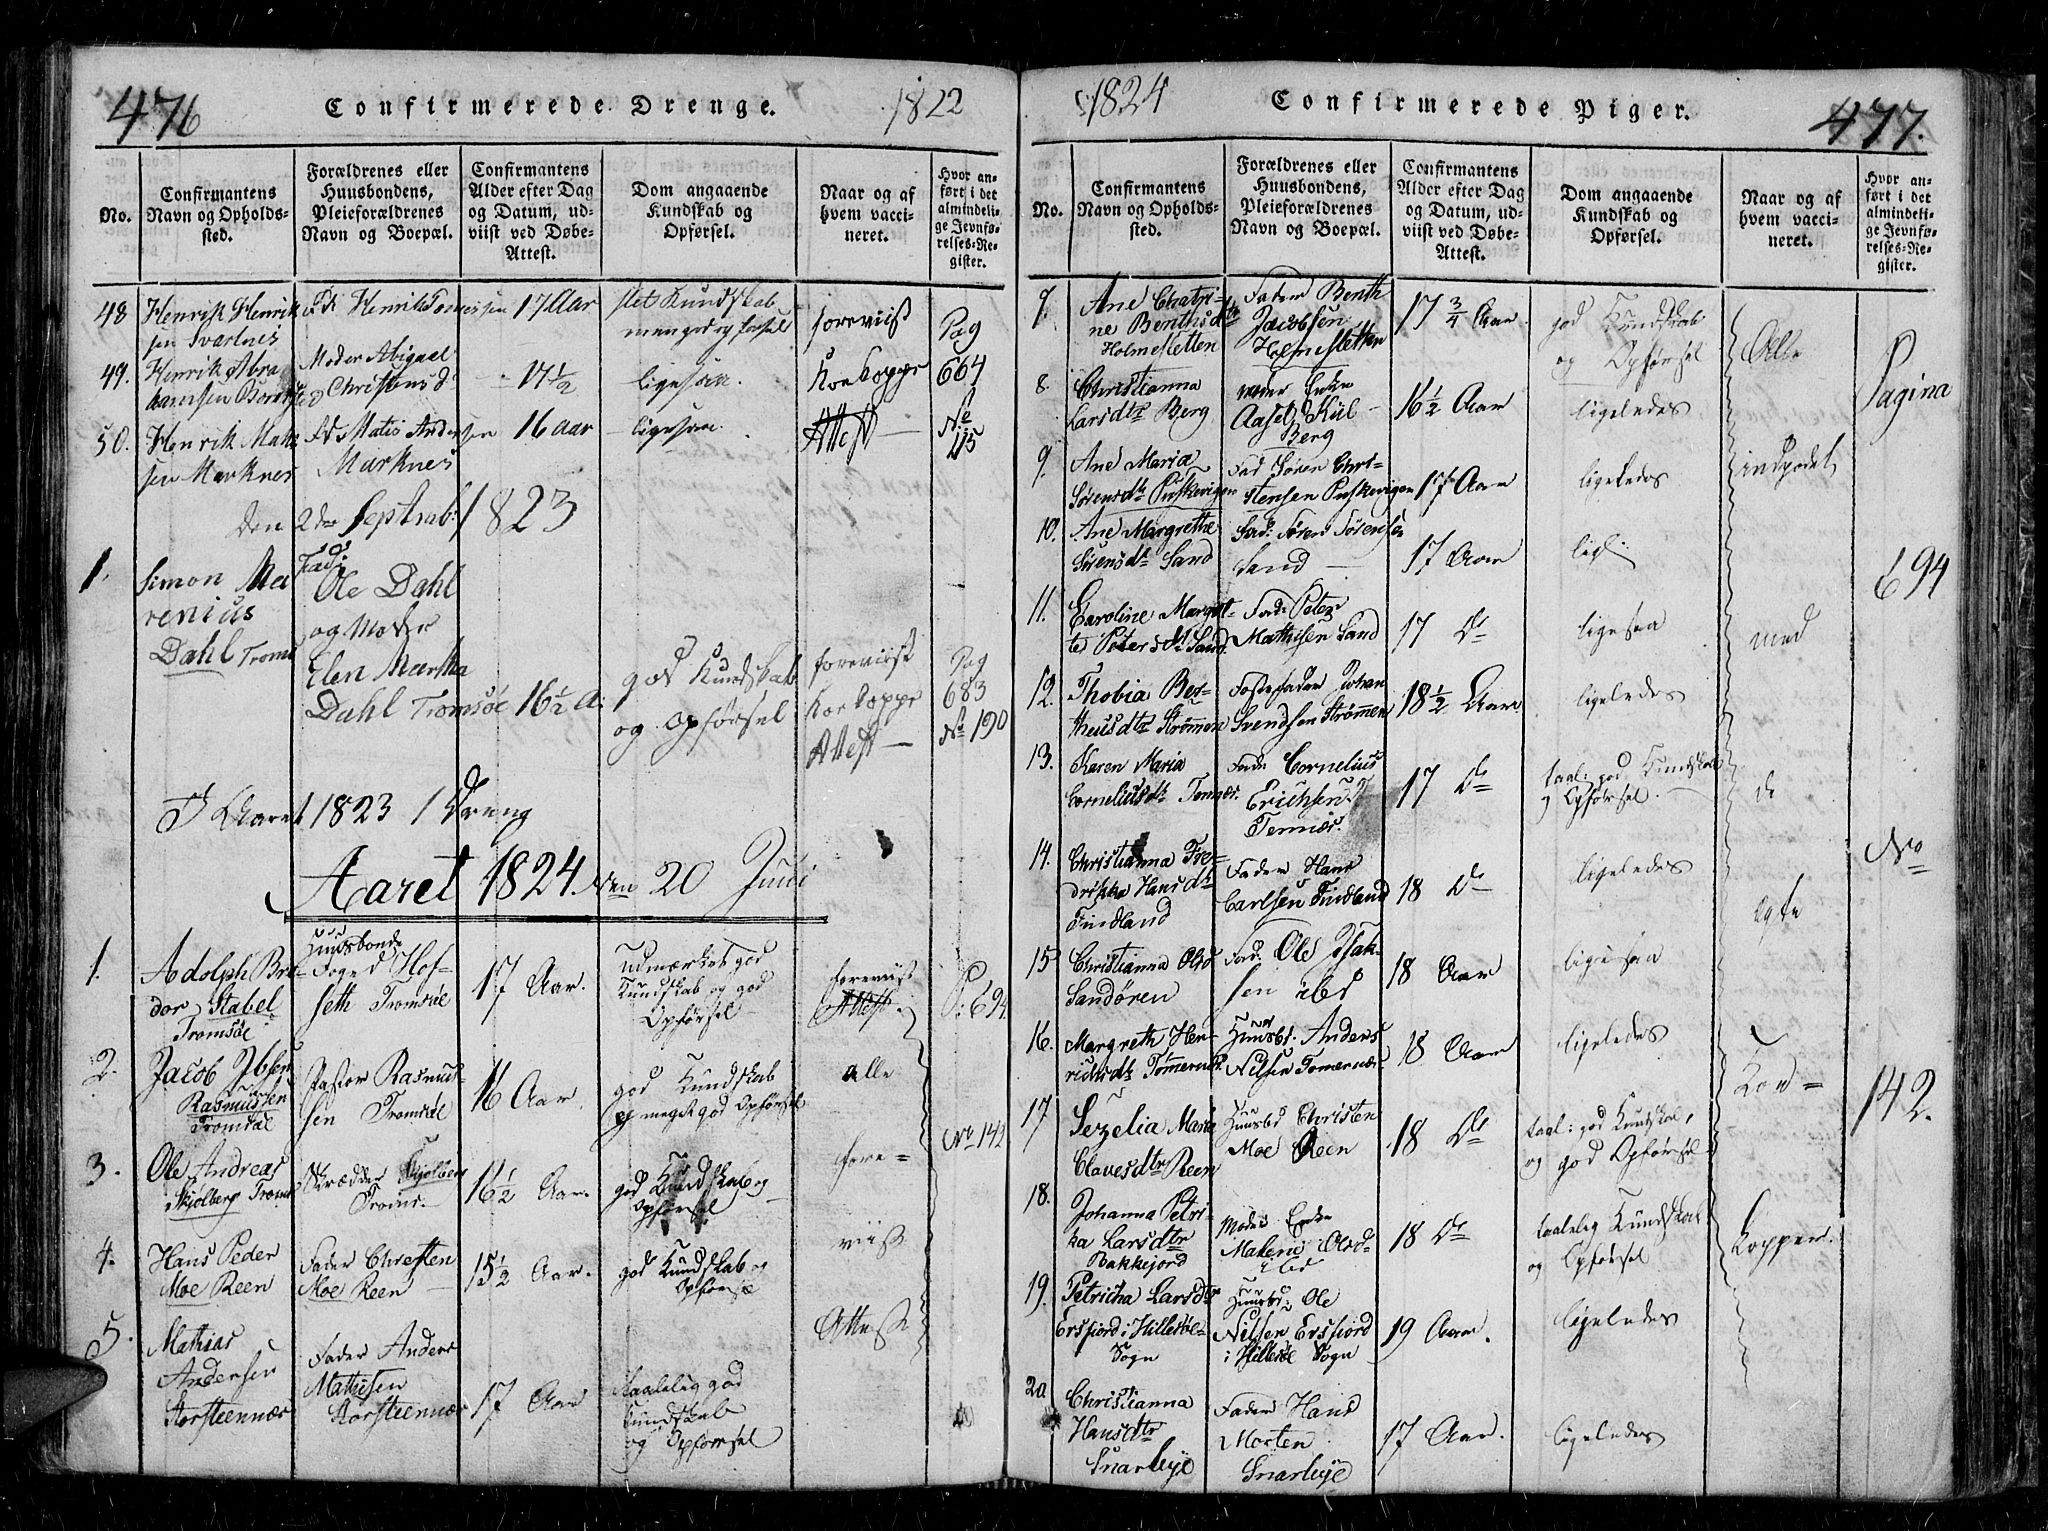 476 Confirmerede Drenge. 1822
No.
Confirmantens Navn og Opholdssted.
Forældrenes eller Huusbondens, Pleieforældrenes Navn og Boepæl.
Confirmantens Alder efter Dag og Datum, udviist ved Døbe-Attest.
Dom angaaende Kundskab og Opførsel.
Naar og af hvem vaccineret.
Hvor anført i det almindelige Jevnførelses-Register.
48 Henrik Henriksen Svartnes
17 Aar
slet Kundskab men god opførsel
foreviist
Pag
49. Henrik Abrahamsen
Moder Abigael Christensd
17 1/2
ligesaa.
Koekoppe
664
50. Henrik Matisen Marknes
Fdr Matis Andersen Marknes
16 Aar
ligesaa.
Attest
No 115
den 2den Septmb: 1823
1. Simon Marenius Dahl Tromsøe
Fad: Ole Dahl og Moder Elen Martha Dahl Tromsöe
16 1/2 A:
god Kundskab og Opførsel
foreviist Koekoppe Attest
Pag 683 No 190
I Aaret 1823 1 Dreng
Aaret 1824. den 20 Juni
1. Adolph Bredor Stabel Tromsöe
Huusbonde Foged Hofseth Tromsöe
17 Aar.
udmærket god Kundskab og god Opførsel
foreviist Attest.
P: 694
2. Jacob Ibsen Rasmussen Tromsöe
Pastor Rasmussen Tromsöe
16 Aar
god Kundskab og meget god Opførsel
alle
3. Ole Andreas Skjelberg Tromsöe
Skrædder Tromsöe
16 1/2 Aar.
god Kundskab og Opførsel
fore=
No 142
4. Hans Peder Moe Reen
Fader Christen Moe Reen
15 1/2 Aar.
god Kundskab og Opførsel
viist
5. Mathias Andersen Storsteennæs
Fader Anders Mathisen Storsteennæs
17 Aar
taalelig god Kundskab og Opførsel
Attest
1824 Confirmerede Piger. 477.
No.
Confirmantens Navn og Opholdssted.
Forældrenes eller Huusbondens, Pleieforældrenes Navn og Boepæl.
Confirmantens Alder efter Dag og Datum, udviist ved Døbe-Attest.
Dom angaaende Kundskab og Opførsel.
Naar og af hvem vaccineret.
Hvor anført i det almindelige Jevnførelses-Register.
7. Ane Chatrine Benthsdtr Holmesletten
Fader Benth Jacobsen Holmesletten
17 3/4 Aar.
god Kundskab og Opførsel
Alle
Pagina
8. Christianna Larsdtr Berg
Berg
16 1/2 Aar
ligeledes
9. Ane Maria Sörensdtr Puskevigen
Fad Sören Christensen Puskevigen
17 Aar
ligeledes
indpodet
10. Ane Margrethe Sörensdtr Sand
Fad: Sören Sörensen Sand
17 Aar
ligl:
694
11. Caroline Margrete Petersdtr Sand
Fad: Peter Mathisen Sand
17 Do
ligesaa
med
12. Thobia Bertheusdtr Strömmen
Fosterfader Johan Svendsen Strömmen
18 1/2 Aar
ligeledes
13. Karen Maria Corneliusdtr Tennæs.
Fad: Cornelius Erichsen Tennæs.
17 Do
taal: god Kundskab og Opførsel.
de
14. Christianna Fredrikka Hansdtr Tindland
Fader Hans Carlsen Tindland
18 Do
ligeledes
No
ægte
15 Christianna Olsd Sandören
Fad: Ole Isaksen ibd
18 Aar
ligesaa
16. Margreth Henrichsdtr Tömernes.
Huusbd. Anders Nilsen Tomernæs
18 Aar
ligeledes
Koe=
142.
17 Sezelia Maria Clavesdtr Reen
Huusbd Christen Moe Reen
18 Do
taal: god Kundskab, og god Opførsel
18. Johanna Petrika Larsdtr Bakkejord
Moder Enke Malene Olsd Ibid
18 Do
taalelig Kundskab og Opførsel
Kopper.
19. Petricha Larsdtr Ersfiord i Hillesöe Sogn
Huusbd: Ole Nilsen Ersfiord i Hillesöe Sogn
19 Aar.
ligeledes
20 Christianna Hansdtr Snarbye
Fader Hans Morten Snarbye
17 Aar.
ligeledes